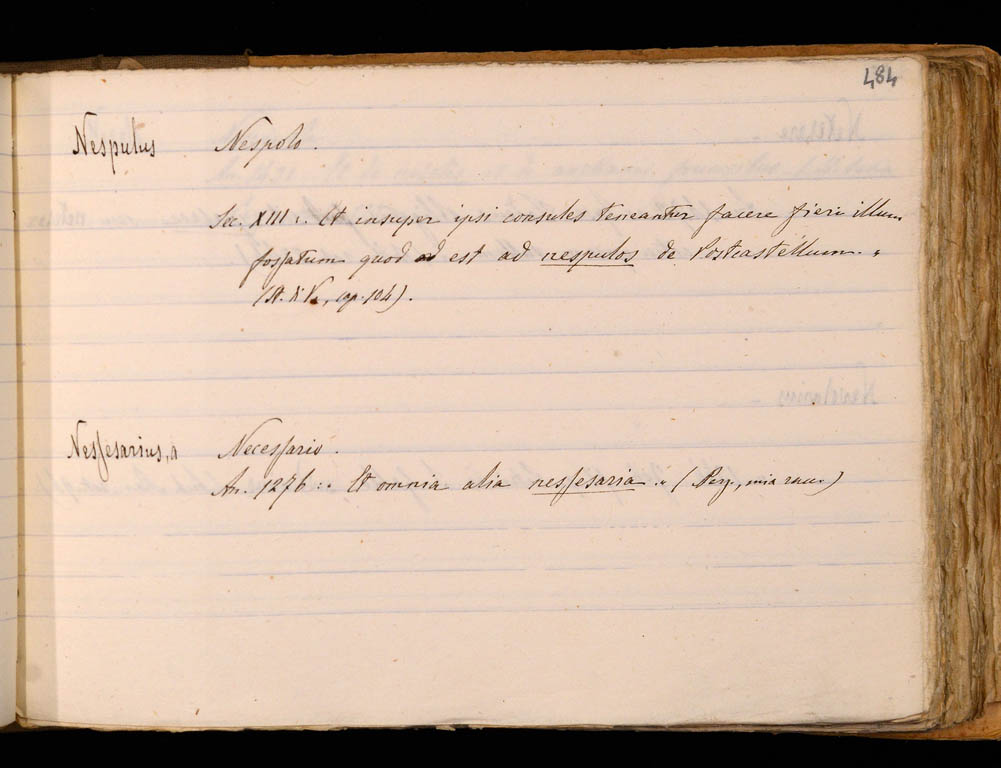 484
Nespulus Nespolo.
Sec. XIII: "Et insuper ipsi consules teneantur facere fieri illum
fossatum quod est ad nespulos de Postcastellum."
(St. , cap. 104).
Nessesarius, a Necessario.
An. 1276: "Et omnia alia nessesaria" (Perg., mia racc.)